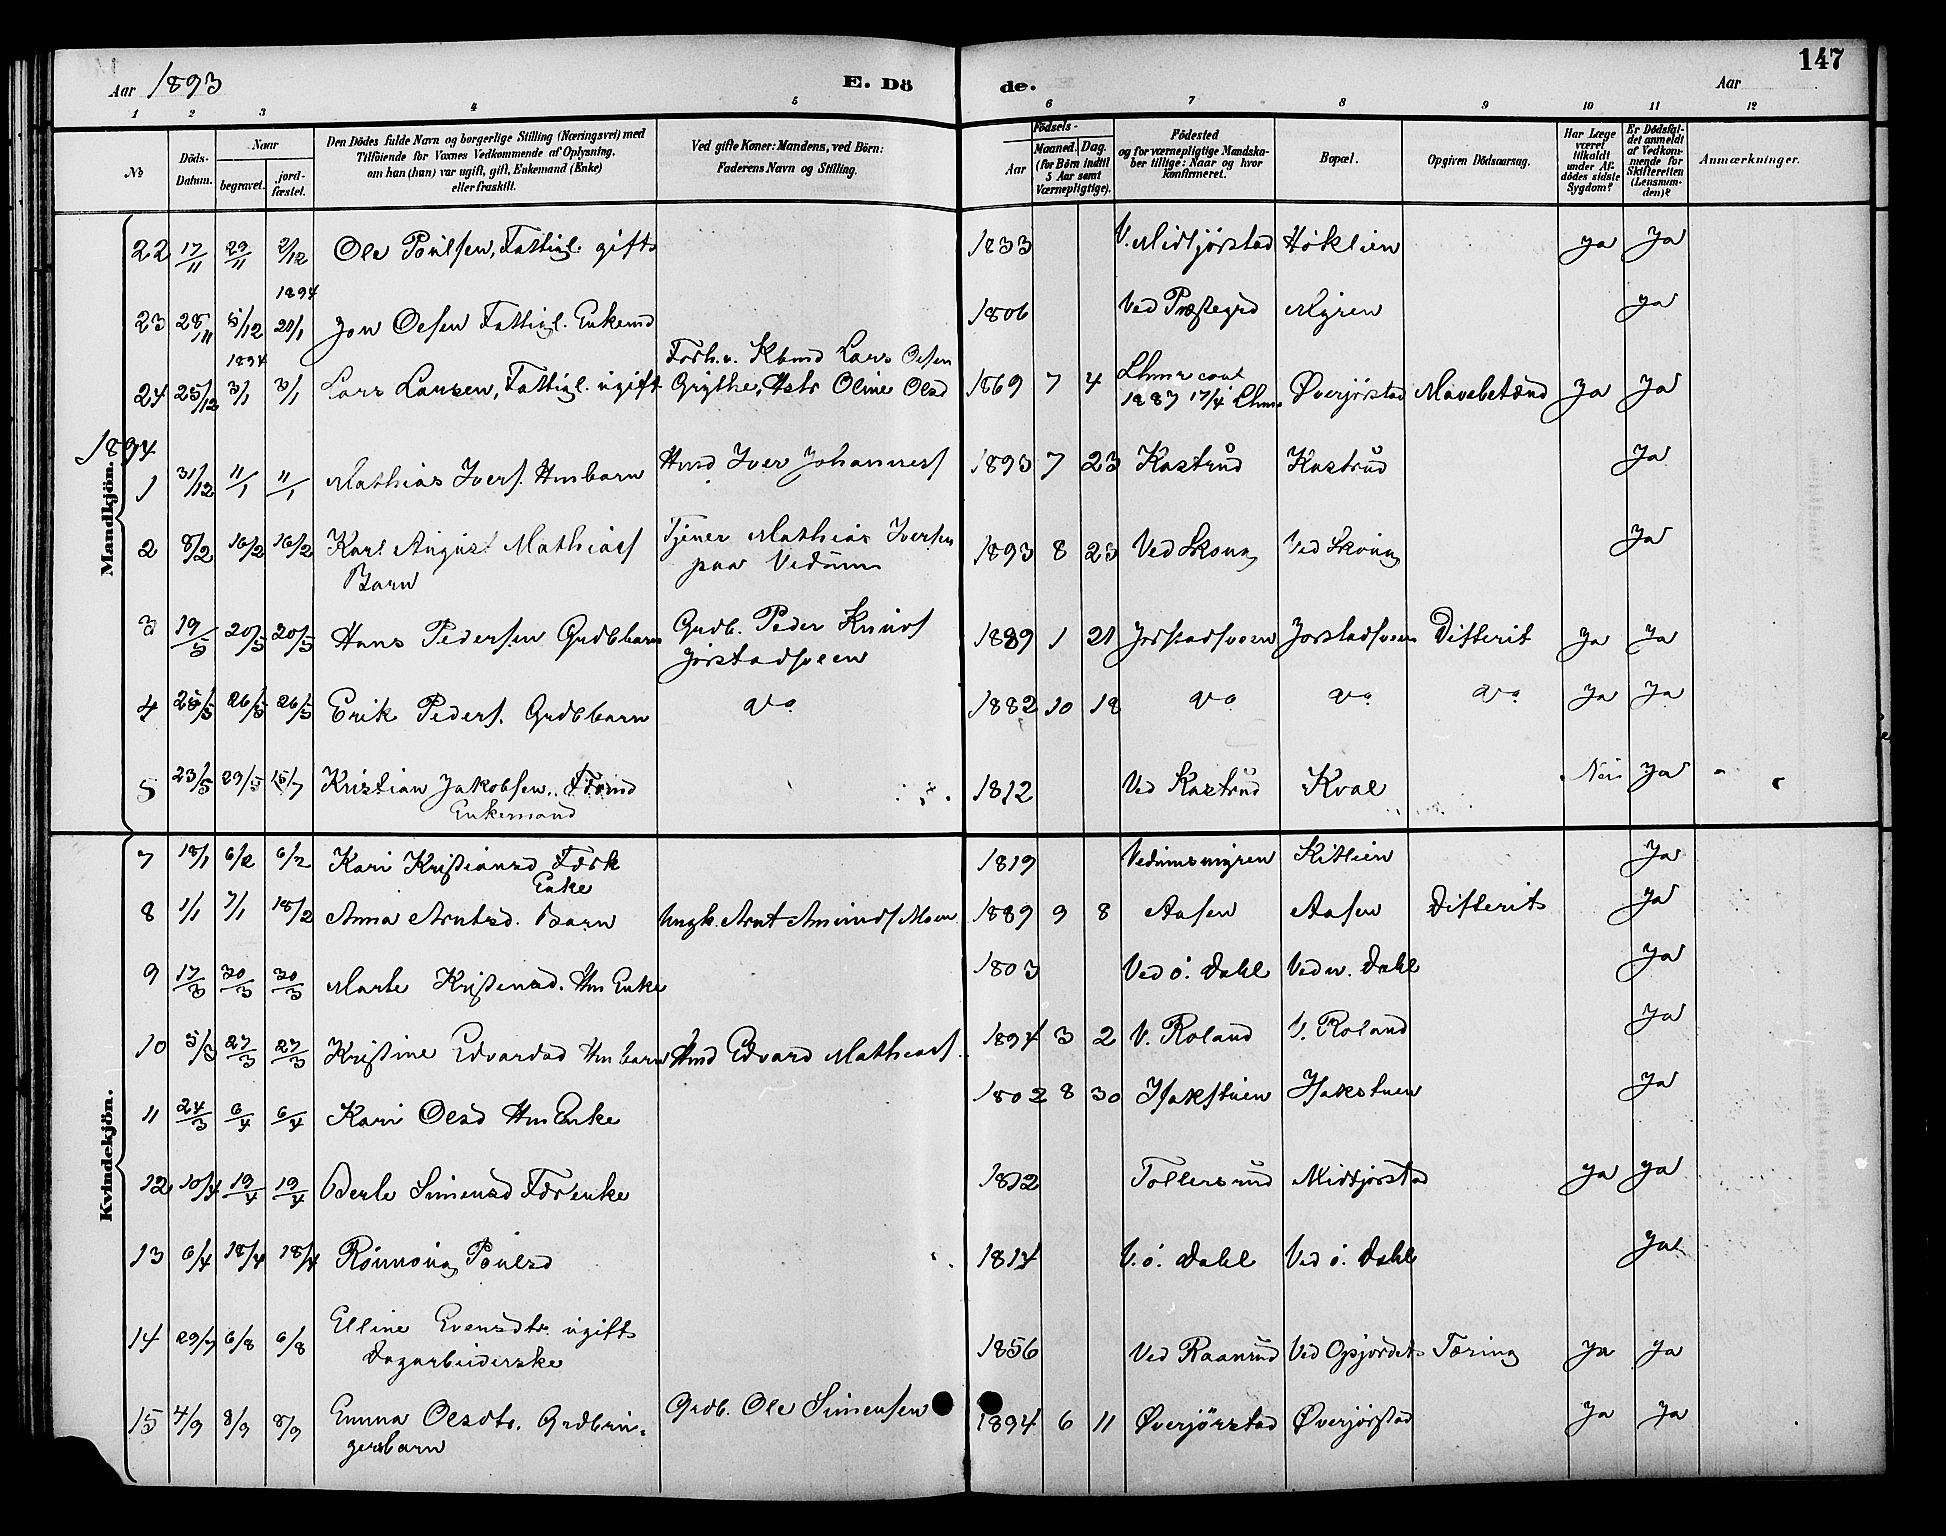 147
Aar 1893 E. Dö de. Aar
1 2 3 4 5 6 7 8 9 10 11 12
No Döds-Datum. Naar begravet. jord-fæstet. Den Dödes fulde Navn og borgerlige Stilling (Næringsvei) med Tilföiende for Voxnes Vedkommende af Oplysning, om han (hun) var ugift, gift, Enkemand (Enke) eller fraskilt. Ved gifte Koner: Mandens, ved Börn: Faderens Navn og Stilling. Födsels- Aar Maaned. Dag. (for Börn indtil 5 Aar samt Værnepligtige). Födested og for værnepligtige Mandskaber tillige: Naar og hvor konfirmeret. Bopæl. Opgiven Dödsaarsag. Har Læge været tilkaldt under Afdödes sidste Sygdom? Er Dödsfaldet anmeldt af Vedkommende for Skifteretten (Lensmanden)? Anmærkninger.
Mandkjön.
22 17/11 29/11 2/12 Ole Poulsen, Fattigl. gift 1833 V. Midtjørstad Høklien ja ja
1894
23 28/11 5/12 21/1 Jon Olsen Fattigl. Enkemd 1806 Ved Præstegrd Myren ja
1894 Forh.v. Kbmd Lars Olsen
24 25/12 3/1 3/1 Lars Larsen, Fattigl. ugift Grythe, Hstr Oline Olsd 1869 7 4 Lhmr 1887 17/4 Lhm. Øverjørstad Mavebetænd ja ja
1894
1 31/12 11/1 11/1 Mathias Ivers. Hmbarn Hmd Iver Johanness 1893 7 23 Kastrud Kastrud ja
2 8/2 16/2 16/2 Karl August Mathiass Tjener Mathias Iversen 1893 8 23 Ved Skoug Ved Skoug ja
Barn paa Vedum
3 19/5 20/5 20/5 Hans Pedersen Grdbbarn Grdb. Peder Knuds 1889 1 21 Jørstadsveen Jorstadsveen Difterit ja ja
Jørstadsveen
4 25/5 26/5 26/5 Erik Peders. Grdbbarn do 1882 10 18 do do do ja ja
5 23/5 29/5 15/7 Kristian Jakobsen, 1812 Ved Kastrud Kval Nei ja
Enkemand
Kvindekjön.
7 18/1 6/2 6/2 Kari Kristiansd 1819 Vedumsmyren Kitlien ja
Enke
8 1/1 7/1 18/2 Anna Arntsd. Barn Ungk. Arnt Amunds Moen 1889 9 8 Aasen Aasen Difterit ja
9 17/3 30/3 30/3 Marte Kristensd. Hm Enke 1803 Ved ö. Dahl Ved n. Dahl ja
10 5/3 27/3 27/3 Kristine Edvardsd Hmbarn Hmd Edvard Mathiass 1894 3 2 V. Roland V. Roland ja
11 24/3 6/4 6/4 Kari Olsd Hm Enke 1802 8 30 Isakstuen Isakstuen ja
12 10/4 19/4 19/4 Berte Simensd 1812 Tollersrud Midtjørstad ja ja
13 6/4 18/4 18/4 Rönnoug Poulsd 1814 V. ö. Dahl Ved ö. Dahl ja
14 29/7 6/8 6/8 Elline Evensdtr. ugift 1856 Ved Raanrud Ved Opjordet Tæring ja ja
Dagarbeiderske
15 4/9 8/9 8/9 Emma Olsdtr. Grdbrin- Grdb. Ole Simensen 1894 6 11 Øverjörstad Øverjørstad ja ja
gerbarn